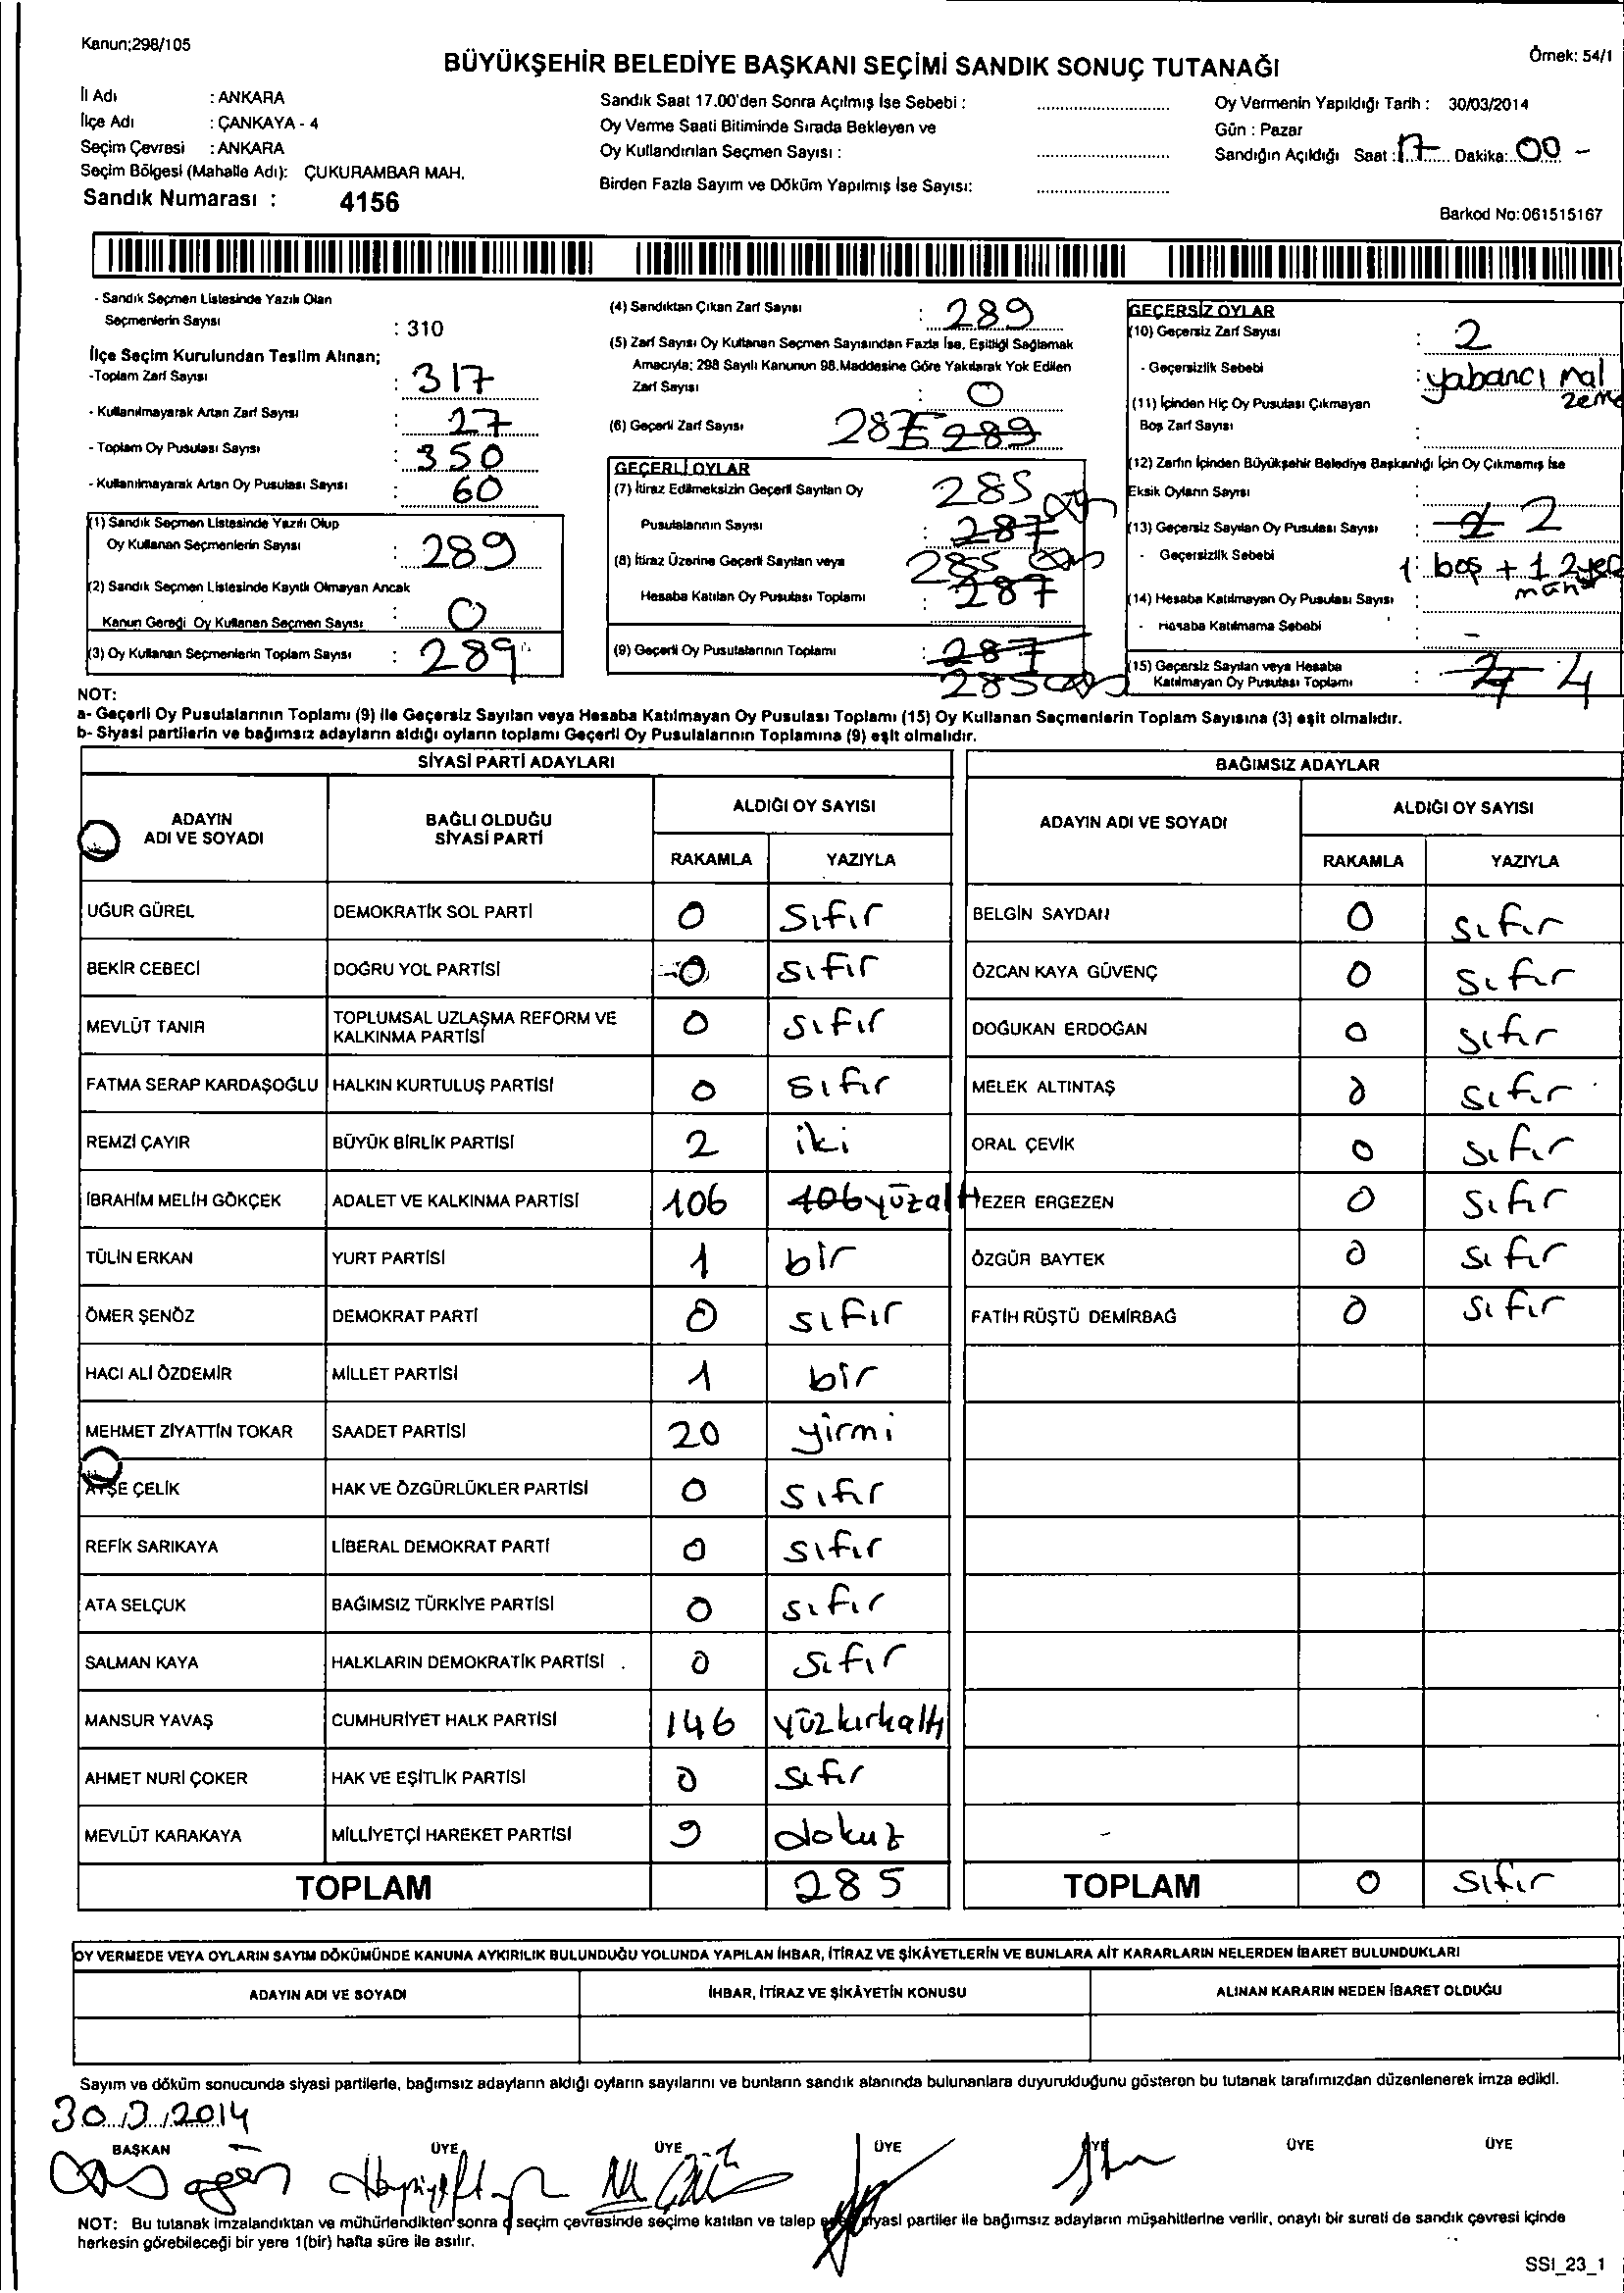 Kanun;298/105
Örnek: 54/1
BÜYÜKŞEHİR BELEDİYE BAŞKANI SEÇİMİ SANDIK SONUÇ TUTANAĞI
İl Adı : ANKARA
İlçe Adı : ÇANKAYA - 4
Seçim Çevresi : ANKARA
Seçim Bölgesi (Mahalle Adı): ÇUKURAMBAR MAH.
Sandık Numarası : 4156
Sandık Saat 17.00'den Sonra Açılmış İse Sebebi :
Oy Verme Saati Bitiminde Sırada Bekleyen ve
Oy Kullandırılan Seçmen Sayısı :
Birden Fazla Sayım ve Döküm Yapılmış İse Sayısı:
Oy Vermenin Yapıldığı Tarih : 30/03/2014
Gün : Pazar
Sandığın Açıldığı Saat : 17 Dakika: 00 -
Barkod No:061515167
- Sandık Seçmen Listesinde Yazılı Olan
Seçmenlerin Sayısı : 310
İlçe Seçim Kurulundan Teslim Alınan;
-Toplam Zarf Sayısı : 317
- Kullanılmayarak Artan Zarf Sayısı : 27
- Toplam Oy Pusulası Sayısı : 350
- Kullanılmayarak Artan Oy Pusulası Sayısı : 60
(1) Sandık Seçmen Listesinde Yazılı Olup
Oy Kullanan Seçmenlerin Sayısı : 289
(2) Sandık Seçmen Listesinde Kayıtlı Olmayan Ancak
Kanun Gereği Oy Kullanan Seçmen Sayısı : 0
(3) Oy Kullanan Seçmenlerin Toplam Sayısı : 289
(4) Sandıktan Çıkan Zarf Sayısı : 289
(5) Zarf Sayısı Oy Kullanan Seçmen Sayısından Fazla İse, Eşitliği Sağlamak
Amacıyla; 298 Sayılı Kanunun 98.Maddesine Göre Yakılarak Yok Edilen
Zarf Sayısı : 0
(6) Geçerli Zarf Sayısı 289
GEÇERLİ OYLAR
(7) İtiraz Edilmeksizin Geçerli Sayılan Oy 285
Pusulalarının Sayısı : 287
(8) İtiraz Üzerine Geçerli Sayılan veya 285
Hesaba Katılan Oy Pusulası Toplamı : 287
(9) Geçerli Oy Pusulalarının Toplamı : 287
285
GEÇERSİZ OYLAR
(10) Geçersiz Zarf Sayısı : 2
- Geçersizlik Sebebi : yabancı mal
zeme
(11) İçinden Hiç Oy Pusulası Çıkmayan
Boş Zarf Sayısı :
(12) Zarfın İçinden Büyükşehir Belediye Başkanlığı İçin Oy Çıkmamış İse
Eksik Oyların Sayısı :
(13) Geçersiz Sayılan Oy Pusulası Sayısı : 2
- Geçersizlik Sebebi 1 boş + 1
(14) Hesaba Katılmayan Oy Pusulası Sayısı :
- Hesaba Katılmama Sebebi : -
(15) Geçersiz Sayılan veya Hesaba
Katılmayan Oy Pusulası Toplamı : 4
NOT:
a- Geçerli Oy Pusulalarının Toplamı (9) ile Geçersiz Sayılan veya Hesaba Katılmayan Oy Pusulası Toplamı (15) Oy Kullanan Seçmenlerin Toplam Sayısına (3) eşit olmalıdır.
b- Siyasi partilerin ve bağımsız adayların aldığı oyların toplamı Geçerli Oy Pusulalarının Toplamına (9) eşit olmalıdır.
SİYASİ PARTİ ADAYLARI
ADAYIN
ADI VE SOYADI
BAĞLI OLDUĞU
SİYASİ PARTİ
ALDIĞI OY SAYISI
RAKAMLA YAZIYLA
UĞUR GÜREL DEMOKRATİK SOL PARTİ 0 sıfır
BEKİR CEBECİ DOĞRU YOL PARTİSİ 0 sıfır
MEVLÜT TANIR TOPLUMSAL UZLAŞMA REFORM VE
KALKINMA PARTİSİ 0 sıfır
FATMA SERAP KARDAŞOĞLU HALKIN KURTULUŞ PARTİSİ 0 sıfır
REMZİ ÇAYIR BÜYÜK BİRLİK PARTİSİ 2 iki
İBRAHİM MELİH GÖKÇEK ADALET VE KALKINMA PARTİSİ 106 106 yüzaltı
TÜLİN ERKAN YURT PARTİSİ 1 bir
ÖMER ŞENÖZ DEMOKRAT PARTİ 0 sıfır
HACI ALİ ÖZDEMİR MİLLET PARTİSİ 1 bir
MEHMET ZİYATTİN TOKAR SAADET PARTİSİ 20 yirmi
AYŞE ÇELİK HAK VE ÖZGÜRLÜKLER PARTİSİ 0 sıfır
REFİK SARIKAYA LİBERAL DEMOKRAT PARTİ 0 sıfır
ATA SELÇUK BAĞIMSIZ TÜRKİYE PARTİSİ 0 sıfır
SALMAN KAYA HALKLARIN DEMOKRATİK PARTİSİ 0 sıfır
MANSUR YAVAŞ CUMHURİYET HALK PARTİSİ 146 yüzkırkaltı
AHMET NURİ ÇOKER HAK VE EŞİTLİK PARTİSİ 0 sıfır
MEVLÜT KARAKAYA MİLLİYETÇİ HAREKET PARTİSİ 9 dokuz
TOPLAM 285
BAĞIMSIZ ADAYLAR
ADAYIN ADI VE SOYADI
ALDIĞI OY SAYISI
RAKAMLA YAZIYLA
BELGİN SAYDAN 0 sıfır
ÖZCAN KAYA GÜVENÇ 0 sıfır
DOĞUKAN ERDOĞAN 0 sıfır
MELEK ALTINTAŞ 0 sıfır
ORAL ÇEVİK 0 sıfır
EZER ERGEZEN 0 sıfır
ÖZGÜR BAYTEK 0 sıfır
FATİH RÜŞTÜ DEMİRBAĞ 0 sıfır
TOPLAM 0 sıfır
OY VERMEDE VEYA OYLARIN SAYIM DÖKÜMÜNDE KANUNA AYKIRILIK BULUNDUĞU YOLUNDA YAPILAN İHBAR, İTİRAZ VE ŞİKÂYETLERİN VE BUNLARA AİT KARARLARIN NELERDEN İBARET BULUNDUKLARI
ADAYIN ADI VE SOYADI İHBAR, İTİRAZ VE ŞİKÂYETİN KONUSU ALINAN KARARIN NEDEN İBARET OLDUĞU
Sayım ve döküm sonucunda siyasi partilerle, bağımsız adayların aldığı oyların sayılarını ve bunların sandık alanında bulunanlara duyurulduğunu gösteren bu tutanak tarafımızdan düzenlenerek imza edildi.
30/3/2014
BAŞKAN ÜYE ÜYE ÜYE ÜYE ÜYE ÜYE
NOT: Bu tutanak imzalandıktan ve mühürlendikten sonra o seçim çevresinde seçime katılan ve talep eden siyasi partiler ile bağımsız adayların müşahitlerine verilir, onaylı bir sureti de sandık çevresi içinde
herkesin görebileceği bir yere 1(bir) hafta süre ile asılır.
SSI_23_1